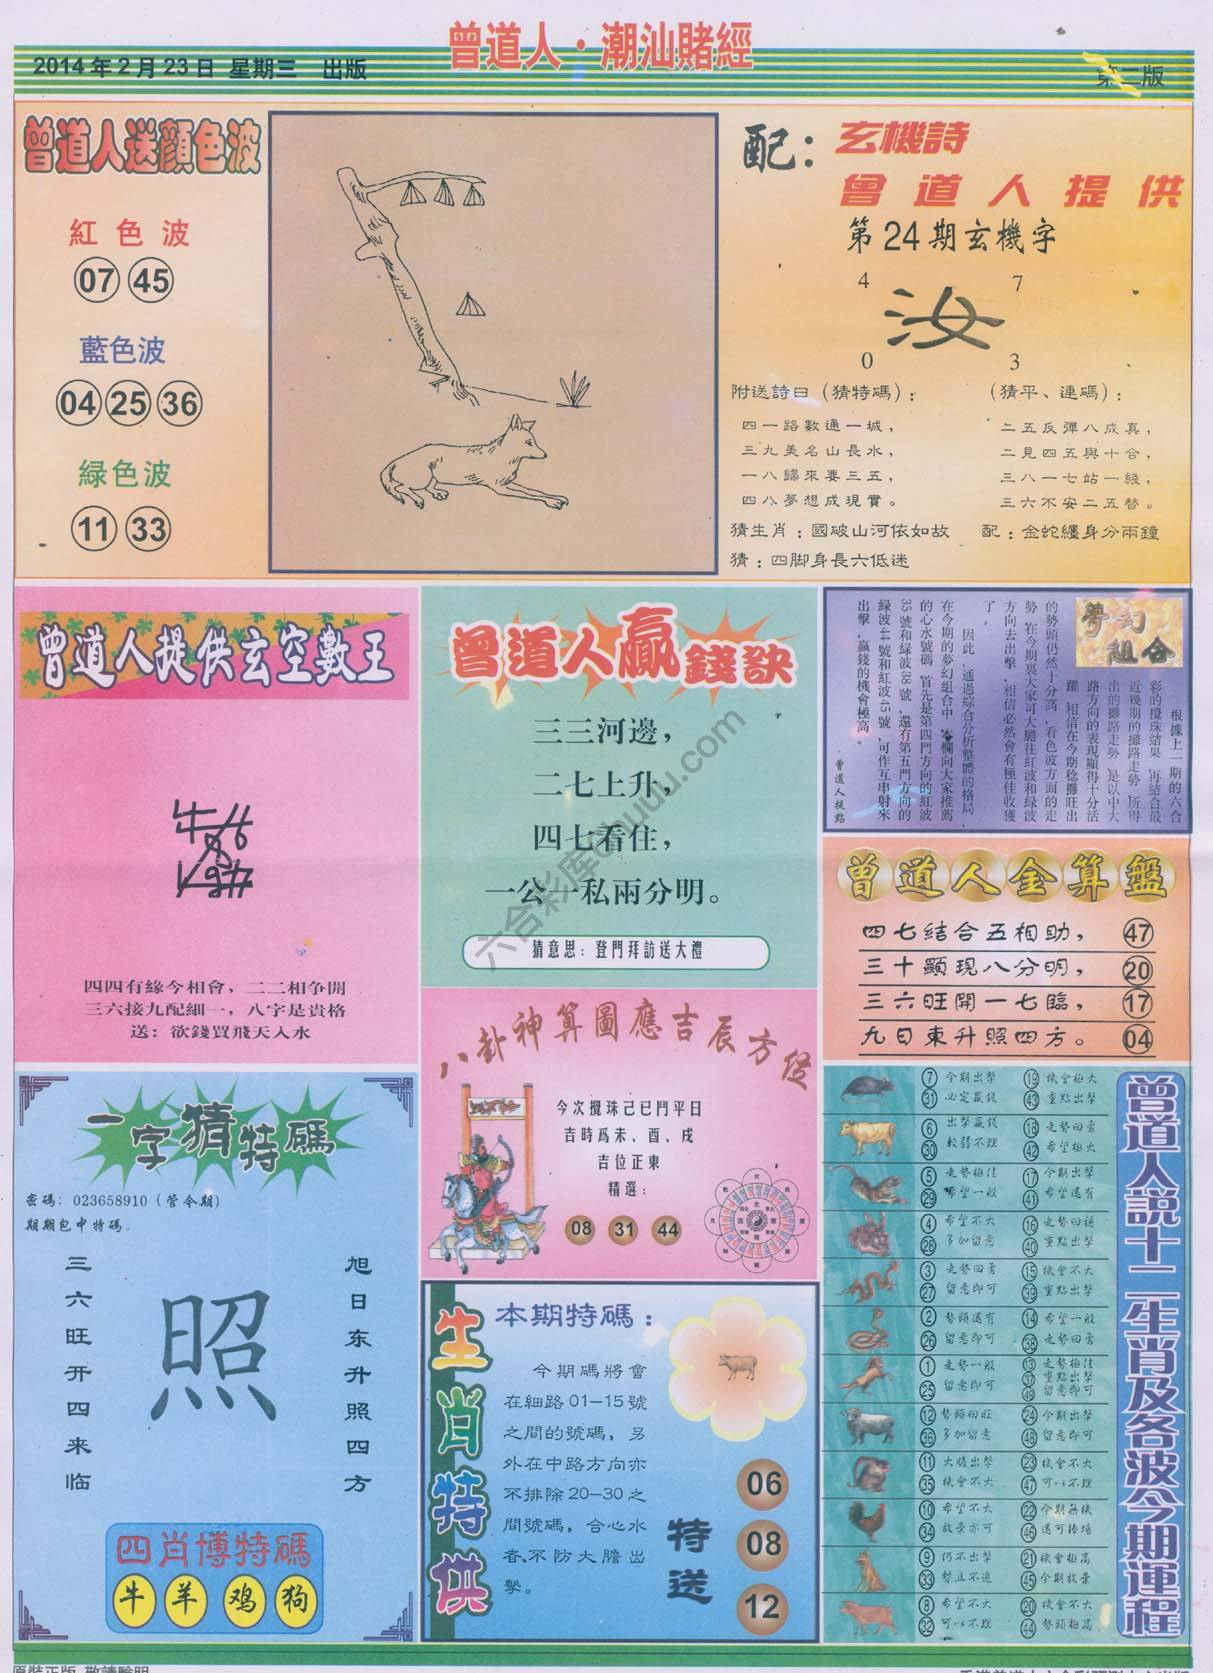 曾道人·潮汕賭經
2014年2月23日 星期三 出版
第二版
曾道人送顔色波
紅色波
07 45
藍色波
04 25 36
緑色波
11 33
配：
玄機詩
曾道人提供
第24期玄機字
4 7
汝
0 3
附送詩曰（猜特碼）：
四一路數通一城，
三九美名山長水，
一八歸來要三五，
四八夢想成現實。
（猜平、連碼）：
二五反彈八成真，
二見四五與十合，
三八一七站一綫，
三六不安二五替。
猜生肖：國破山河依如故
配：金蛇纏身分兩鐘
猜：四脚身長六低迷
曾道人提供玄空數王
四四有緣今相會，二二相争開
三六接九配細一，八字是貴格
送：欲錢買飛天入水
曾道人贏錢訣
三三河邊，
二七上升，
四七看住，
一公一私兩分明。
猜意思：登門拜訪送大禮
六合彩库chuutu.com
夢幻組合
根據上一期的六合
彩的攪珠結果，再結合最
近幾期的攤路走勢，所得
出的攤路走勢，是以中大
路方向的表現顯得十分活
躍，知信在今期稔攤旺出
的勢頭仍然十分高，看色波方面的走
勢，在今期裏大家可大膽往紅波和緑波
方向去出擊，相信必然會有極佳收獲
了。
因此，通過綜合分析整體的格局，
在今期的夢幻組合中，本欄向大家推薦
的心水號碼，首先是第四門方向的紅波
35號和緑波38號，還有第五門方向的
緑波44號和紅波45號，可作互串射來
出擊，贏錢的機會極高。
曾道人提路
曾道人金算盤
四七結合五相助， 47
三十顯現八分明， 20
三六旺開一七臨， 17
九日東升照四方。 04
八卦神算圖應吉辰方位
今次攪珠己巳門平日
吉時爲未、酉、戌
吉位正東
精選：
08 31 44
一字猜特碼
密碼：023658910（管令期）
期期包中特碼。
三六旺开四来临
照
旭日东升照四方
四肖博特碼
牛 羊 鸡 狗
生肖特供
本期特碼：
今期碼將會
在細路01—15號
之間的號碼，另
外在中路方向亦
不排除20—30之
間號碼，合心水
者，不防大膽出
擊。
特送
06
08
12
曾道人説十二生肖及各波今期運程
7 今期出擊 19 機會極大
31 必定贏錢 43 重點出擊
6 出擊贏錢 18 走勢回勇
30 較弱不理 42 希望極大
5 走勢極佳 17 今期出擊
29 希望一般 41 希望還有
4 希望不大 16 走勢回穩
28 多加留意 40 重點出擊
3 走勢回勇 15 機會不大
27 留意即可 39 重點出擊
2 勢頭還有 14 希望一般
26 留意即可 38 走勢回勇
1 走勢一般 13 走勢極佳
37 重點出擊
25 留意即可 49 留意即可
12 勢頭回旺 24 今期出擊
36 多加留意 48 留意即可
11 大膽出擊 23 機會不大
35 機會不大 47 可以不理
10 希望不大 22 今期無機
34 放棄亦可 46 還可捧場
9 仍不出擊 21 機會極高
33 暫且不追 45 今期放棄
8 希望不大 20 機會不大
32 可以不理 44 勢頭極高